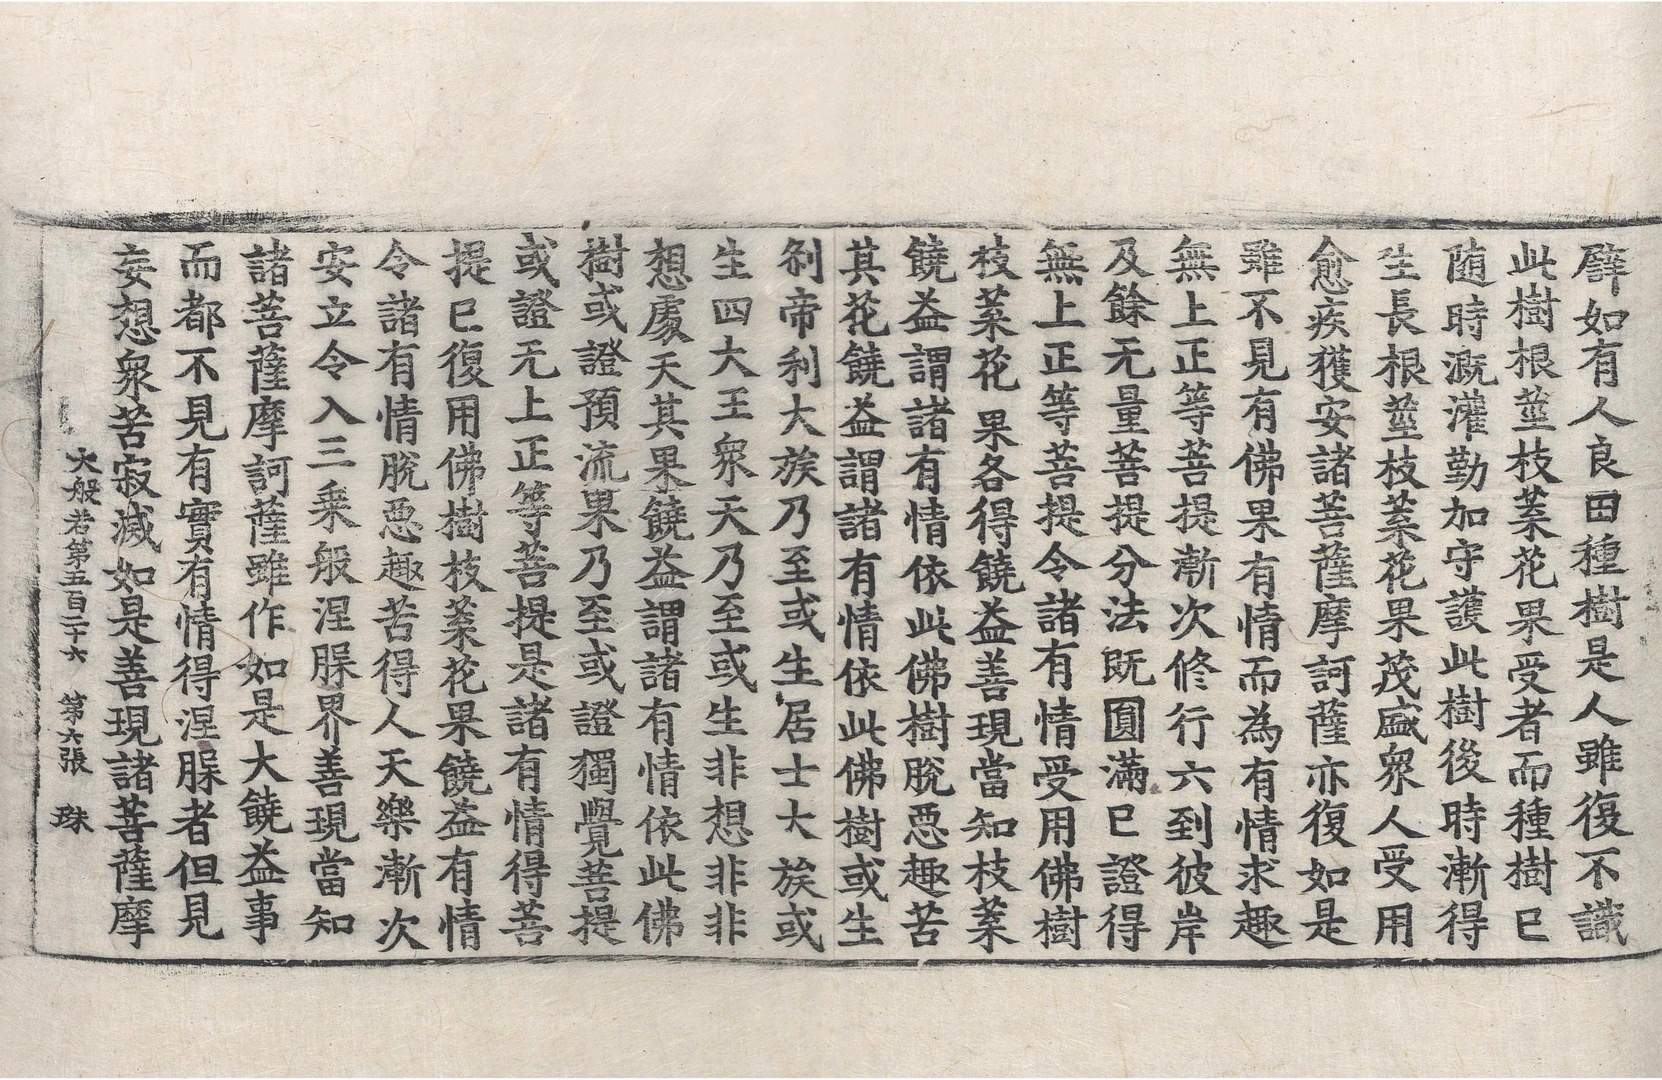 譬如有人良田種樹是人雖復不識
此樹根莖枝葉花果受者而種樹已
随時溉灌勤加守護此樹後時漸得
生長根莖枝葉花果茂盛衆人受用
愈疾獲安諸菩薩摩訶薩亦復如是
雖不見有佛果有情而為有情求趣
無上正等菩提漸次修行六到彼岸
及餘无量菩提分法既圓滿已證得
無上正等菩提令諸有情受用佛樹
枝葉花果各得饒益善現當知枝葉
饒益謂諸有情依此佛樹脫惡趣苦
其花饒益謂諸有情依此佛樹或生
剎帝利大族乃至或生居士大族或
生四大王衆天乃至或生非想非非
想處天其果饒益謂諸有情依此佛
樹或證預流果乃至或證獨覺菩提
或證无上正等菩提是諸有情得菩
提已復用佛樹枝葉花果饒益有情
令諸有情脫惡趣苦得人天樂漸次
安立令入三乘般涅槃界善現當知
諸菩薩摩訶薩雖作如是大饒益事
而都不見有實有情得涅槃者但見
妄想衆苦寂滅如是善現諸菩薩摩
大般若第五百二十六 第六張 珠